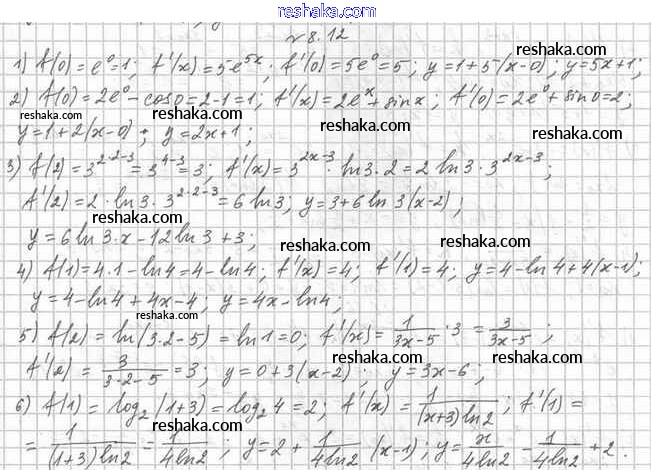 reshaka.com
№8.12
1) f(0)=e⁰=1; f'(x)=5e^{5x}; f'(0)=5e⁰=5; y=1+5(x-0); y=5x+1;
2) f(0)=2e⁰-cos0=2-1=1; f'(x)=2e^x+sinx; f'(0)=2e⁰+sin0=2;
y=1+2(x-0); y=2x+1;
3) f(2)=3^{2·2-3}=3^{4-3}=3; f'(x)=3^{2x-3}·ln3·2=2ln3·3^{2x-3};
f'(2)=2·ln3·3^{2·2-3}=6ln3; y=3+6ln3(x-2);
y=6ln3·x-12ln3+3;
4) f(1)=4·1-ln4=4-ln4; f'(x)=4; f'(1)=4; y=4-ln4+4(x-1);
y=4-ln4+4x-4; y=4x-ln4;
5) f(2)=ln(3·2-5)=ln1=0; f'(x)=1/(3x-5)·3=3/(3x-5);
f'(2)=3/(3·2-5)=3; y=0+3(x-2); y=3x-6;
6) f(1)=log₂(1+3)=log₂4=2; f'(x)=1/((x+3)ln2); f'(1)=
=1/((1+3)ln2)=1/(4ln2); y=2+1/(4ln2)(x-1); y=x/(4ln2)-1/(4ln2)+2.
reshaka.com
reshaka.com
reshaka.com
reshaka.com
reshaka.com
reshaka.com
reshaka.com
reshaka.com
reshaka.com
reshaka.com
reshaka.com
reshaka.com
reshaka.com